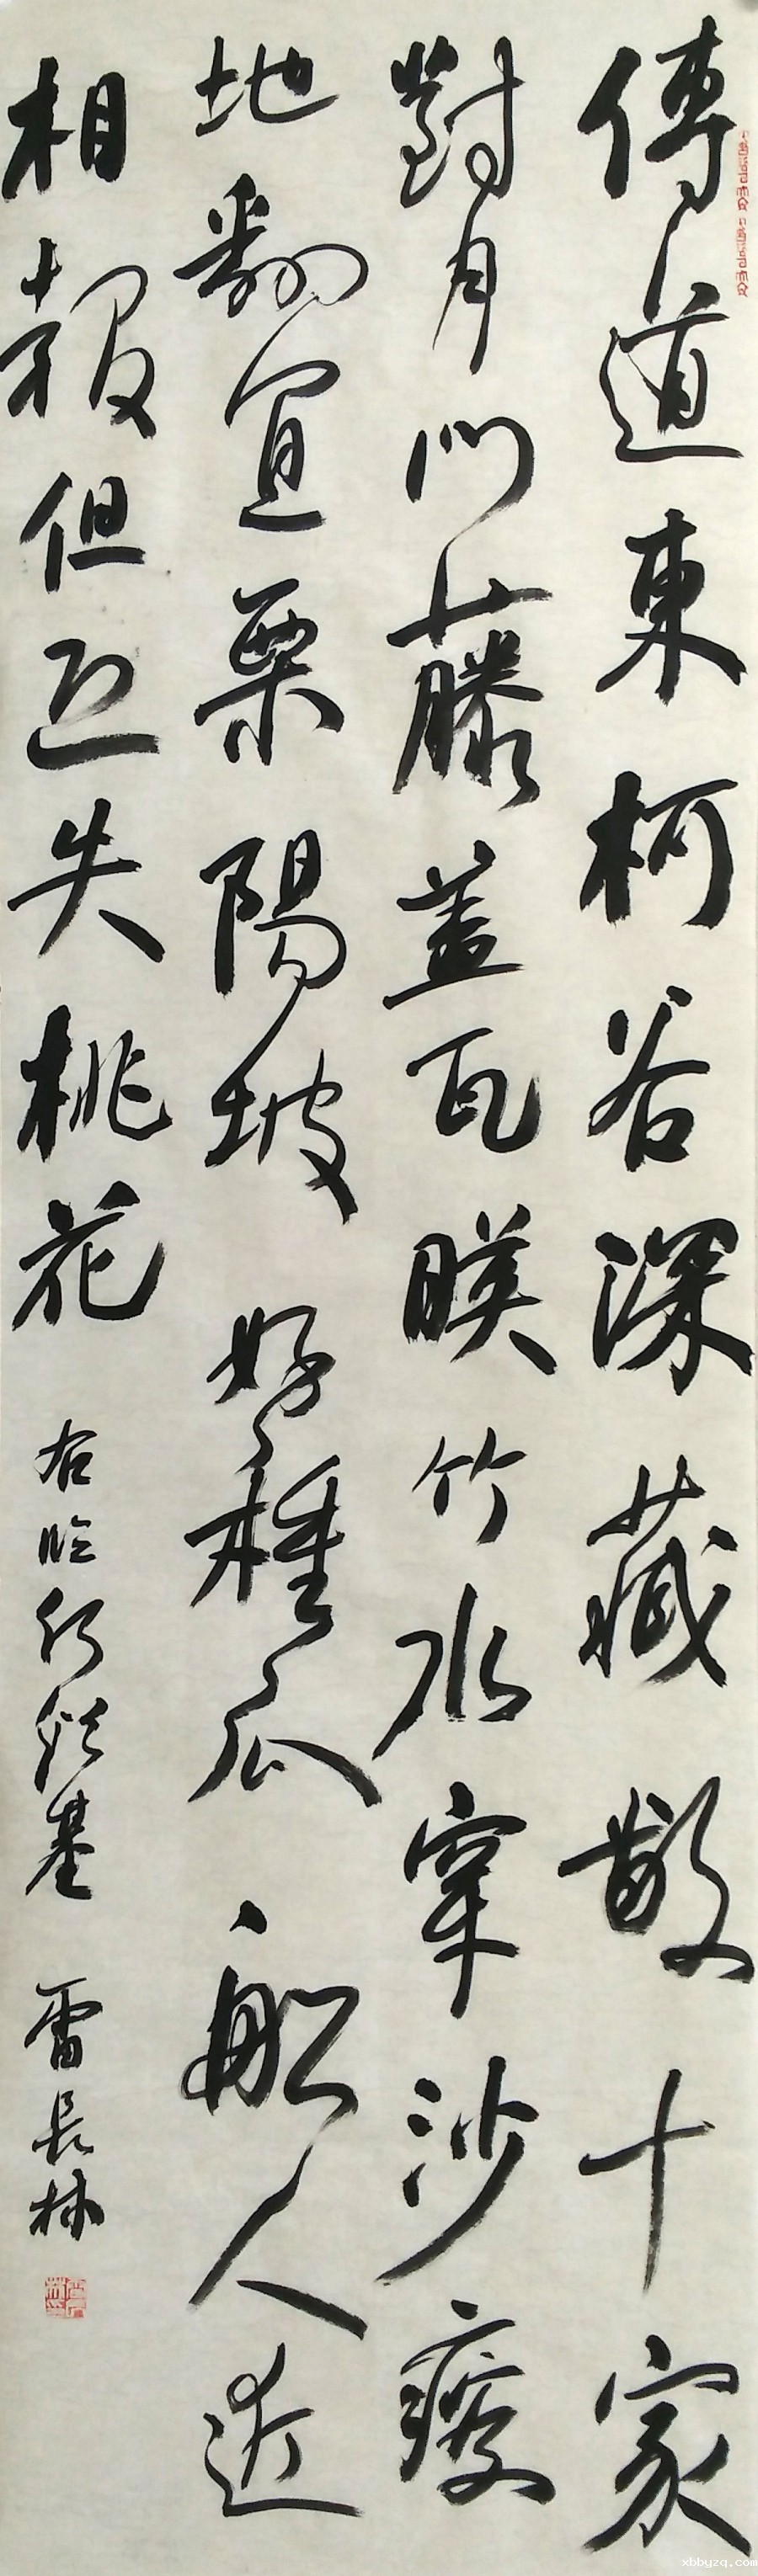 傳道東柯谷深藏數十家
對月門藤盖瓦暎竹水穿沙瘦
地翻宜栗陽坡好種瓜船人近
相報但恐失桃花
右臨何紹基 雷長林
xbbyzq.com